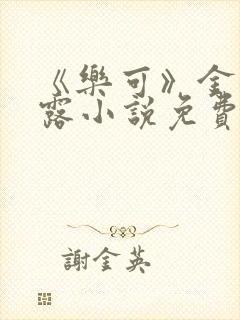 《樂可》金
露小說免費
謝金英